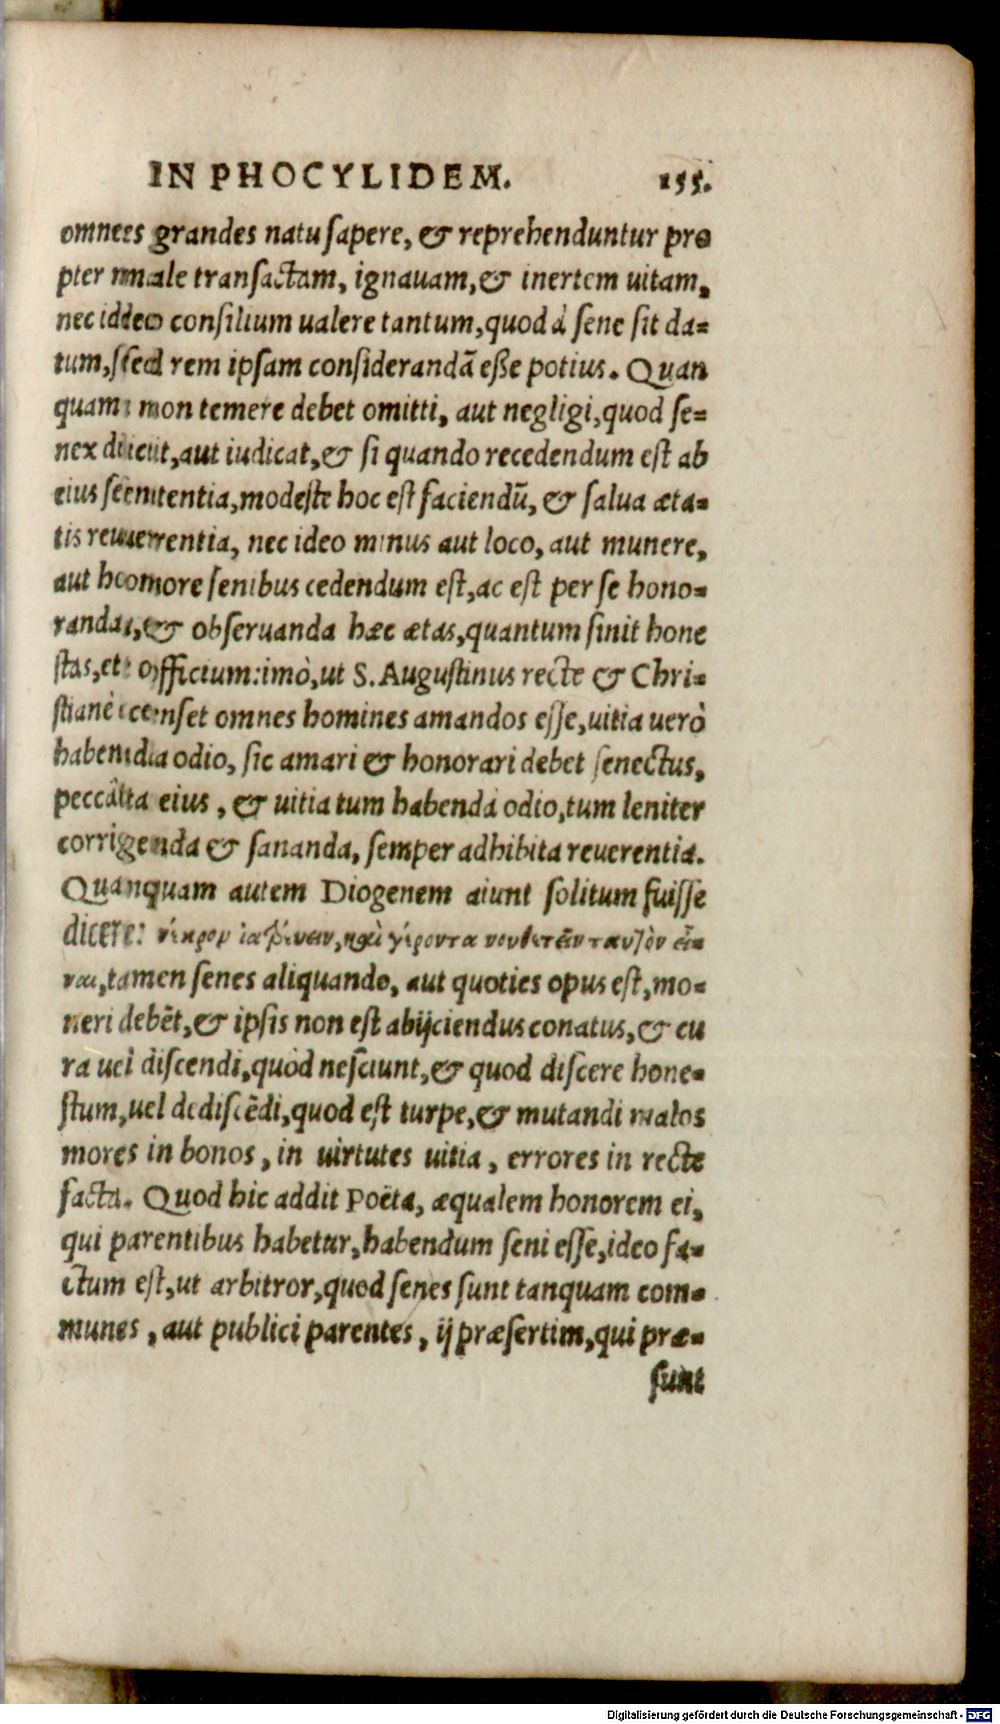 IN PHOCYLIDEM. 155.
omnes grandes natu sapere, & reprehenduntur pro
pter male transactam, ignauam, & inertem uitam,
nec ideo consilium ualere tantum, quod à sene sit da=
tum, sed rem ipsam considerandã esse potius. Quan
quam non temere debet omitti, aut negligi, quod se=
nex dicit, aut iudicat, & si quando recedendum est ab
eius sententia, modeste hoc est faciendũ, & salua æta=
tis reuerentia, nec ideo minus aut loco, aut munere,
aut honore senibus cedendum est, ac est per se hono=
randa, & obseruanda hæc ætas, quantum sinit hone
stas, et officium: imò, ut S. Augustinus recte & Chri=
stianè censet omnes homines amandos esse, uitia uerò
habenda odio, sic amari & honorari debet senectus,
peccata eius, & uitia tum habenda odio, tum leniter
corrigenda & sananda, semper adhibita reuerentia.
Quanquam autem Diogenem aiunt solitum fuisse
dicere: νεκρον ἰατρεύειν, καὶ γέροντα νουθετεῖν ταυτὸν εἶ=
ναι, tamen senes aliquando, aut quoties opus est, mo=
neri debẽt, & ipsis non est abijciendus conatus, & cu
ra uel discendi, quod nesciunt, & quod discere hone=
stum, uel dediscẽdi, quod est turpe, & mutandi malos
mores in bonos, in uirtutes uitia, errores in recte
facta. Quod hic addit Poëta, æqualem honorem ei,
qui parentibus habetur, habendum seni esse, ideo fa=
ctum est, ut arbitror, quod senes sunt tanquam com=
munes, aut publici parentes, ij præsertim, qui præ=
sunt
Digitalisierung gefördert durch die Deutsche Forschungsgemeinschaft - DFG